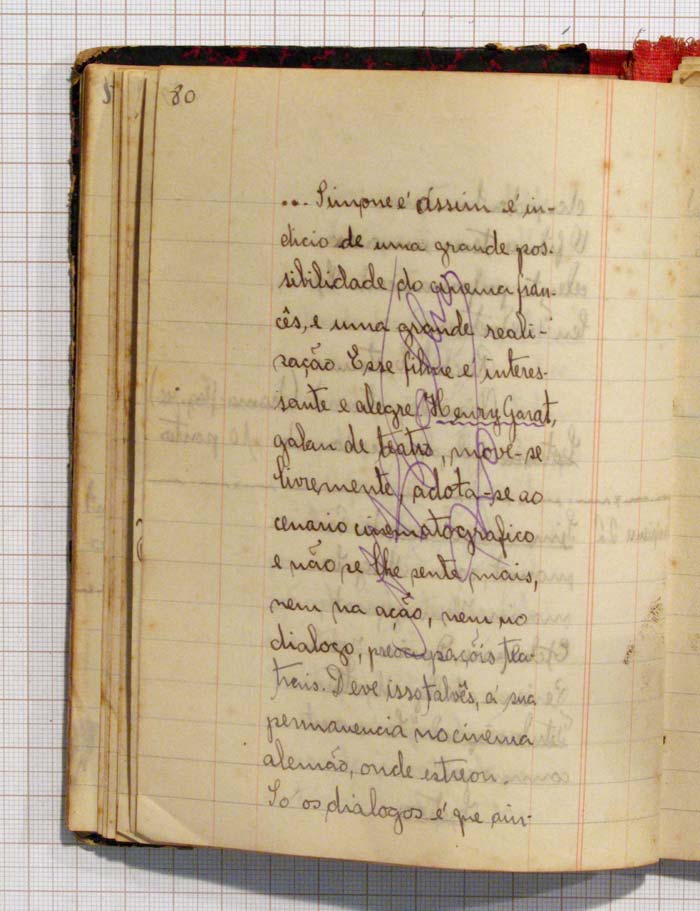 80
... Simone é assim é in-
dicio de uma grande pos-
sibilidade do cinema fran-
cês, e uma grande reali-
zação. Esse filme é interes-
sante e alegre. Henry Garat,
galan de teatro, move-se
livremente, adota-se ao
cenario cinematografico
e não se lhe sente mais,
nem na ação, nem no
dialogo, preocupações tea-
trais. Deve isso talvês, á sua
permanencia no cinema
alemão, onde estreou.
Só os dialogos é que ain-